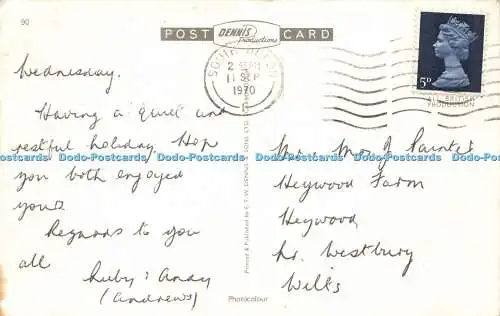 90
POST
DENNIS
Productions
CARD
SOUTH DEVON
2 45 PM
11 SEP
1970
G
5D
ALL BRITISH
PRODUCTION
Wednesday.
Having a quiet and
restful holiday. Hop
you both enjoyed
yours
Regards to you
all
Ruby & Andy
(Andrews)
Mr. Mrs J Painter
Heywood Farm
Heywood
Nr. Westbury
Wilts
Printed & Published by E. T. W. DENNIS & SONS LTD.
Photocolour
Dodo-Postcards Dodo-Postcards Dodo-Postcards Dodo-Postcards Dodo-Postcards